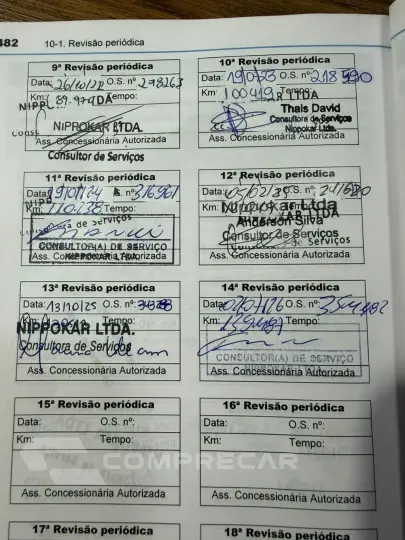 482 10-1. Revisão periódica
9ª Revisão periódica
Data: 26/10/22 O.S. nº: 298263
Km: 89.979 Tempo:
NIPPOKAR LTDA.
Ass. Concessionária Autorizada
Consultor de Serviços
10ª Revisão periódica
Data: O.S. nº:
Km: 100419 Tempo:
Thais David
Consultora de Serviços
Nippokar Ltda.
Ass. Concessionária Autorizada
11ª Revisão periódica
Data: 19/01/24 O.S. nº: 316961
Km: 110238 Tempo:
CONSULTOR(A) DE SERVIÇO
NIPPOKAR LTDA.
Ass. Concessionária Autorizada
12ª Revisão periódica
Data: O.S. nº:
Km: Tempo:
Nippokar Ltda
Anderson Silva
Consultor de Serviços
Ass. Concessionária Autorizada
13ª Revisão periódica
Data: 13/10/25 O.S. nº:
Km: Tempo:
NIPPOKAR LTDA.
Consultora de Serviços
Ass. Concessionária Autorizada
14ª Revisão periódica
Data: O.S. nº:
Km: Tempo:
CONSULTOR(A) DE SERVIÇO
Ass. Concessionária Autorizada
15ª Revisão periódica
Data: O.S. nº:
Km: Tempo:
Ass. Concessionária Autorizada
16ª Revisão periódica
Data: O.S. nº:
Km: Tempo:
Ass. Concessionária Autorizada
COMPRECAR
17ª Revisão periódica
18ª Revisão periódica